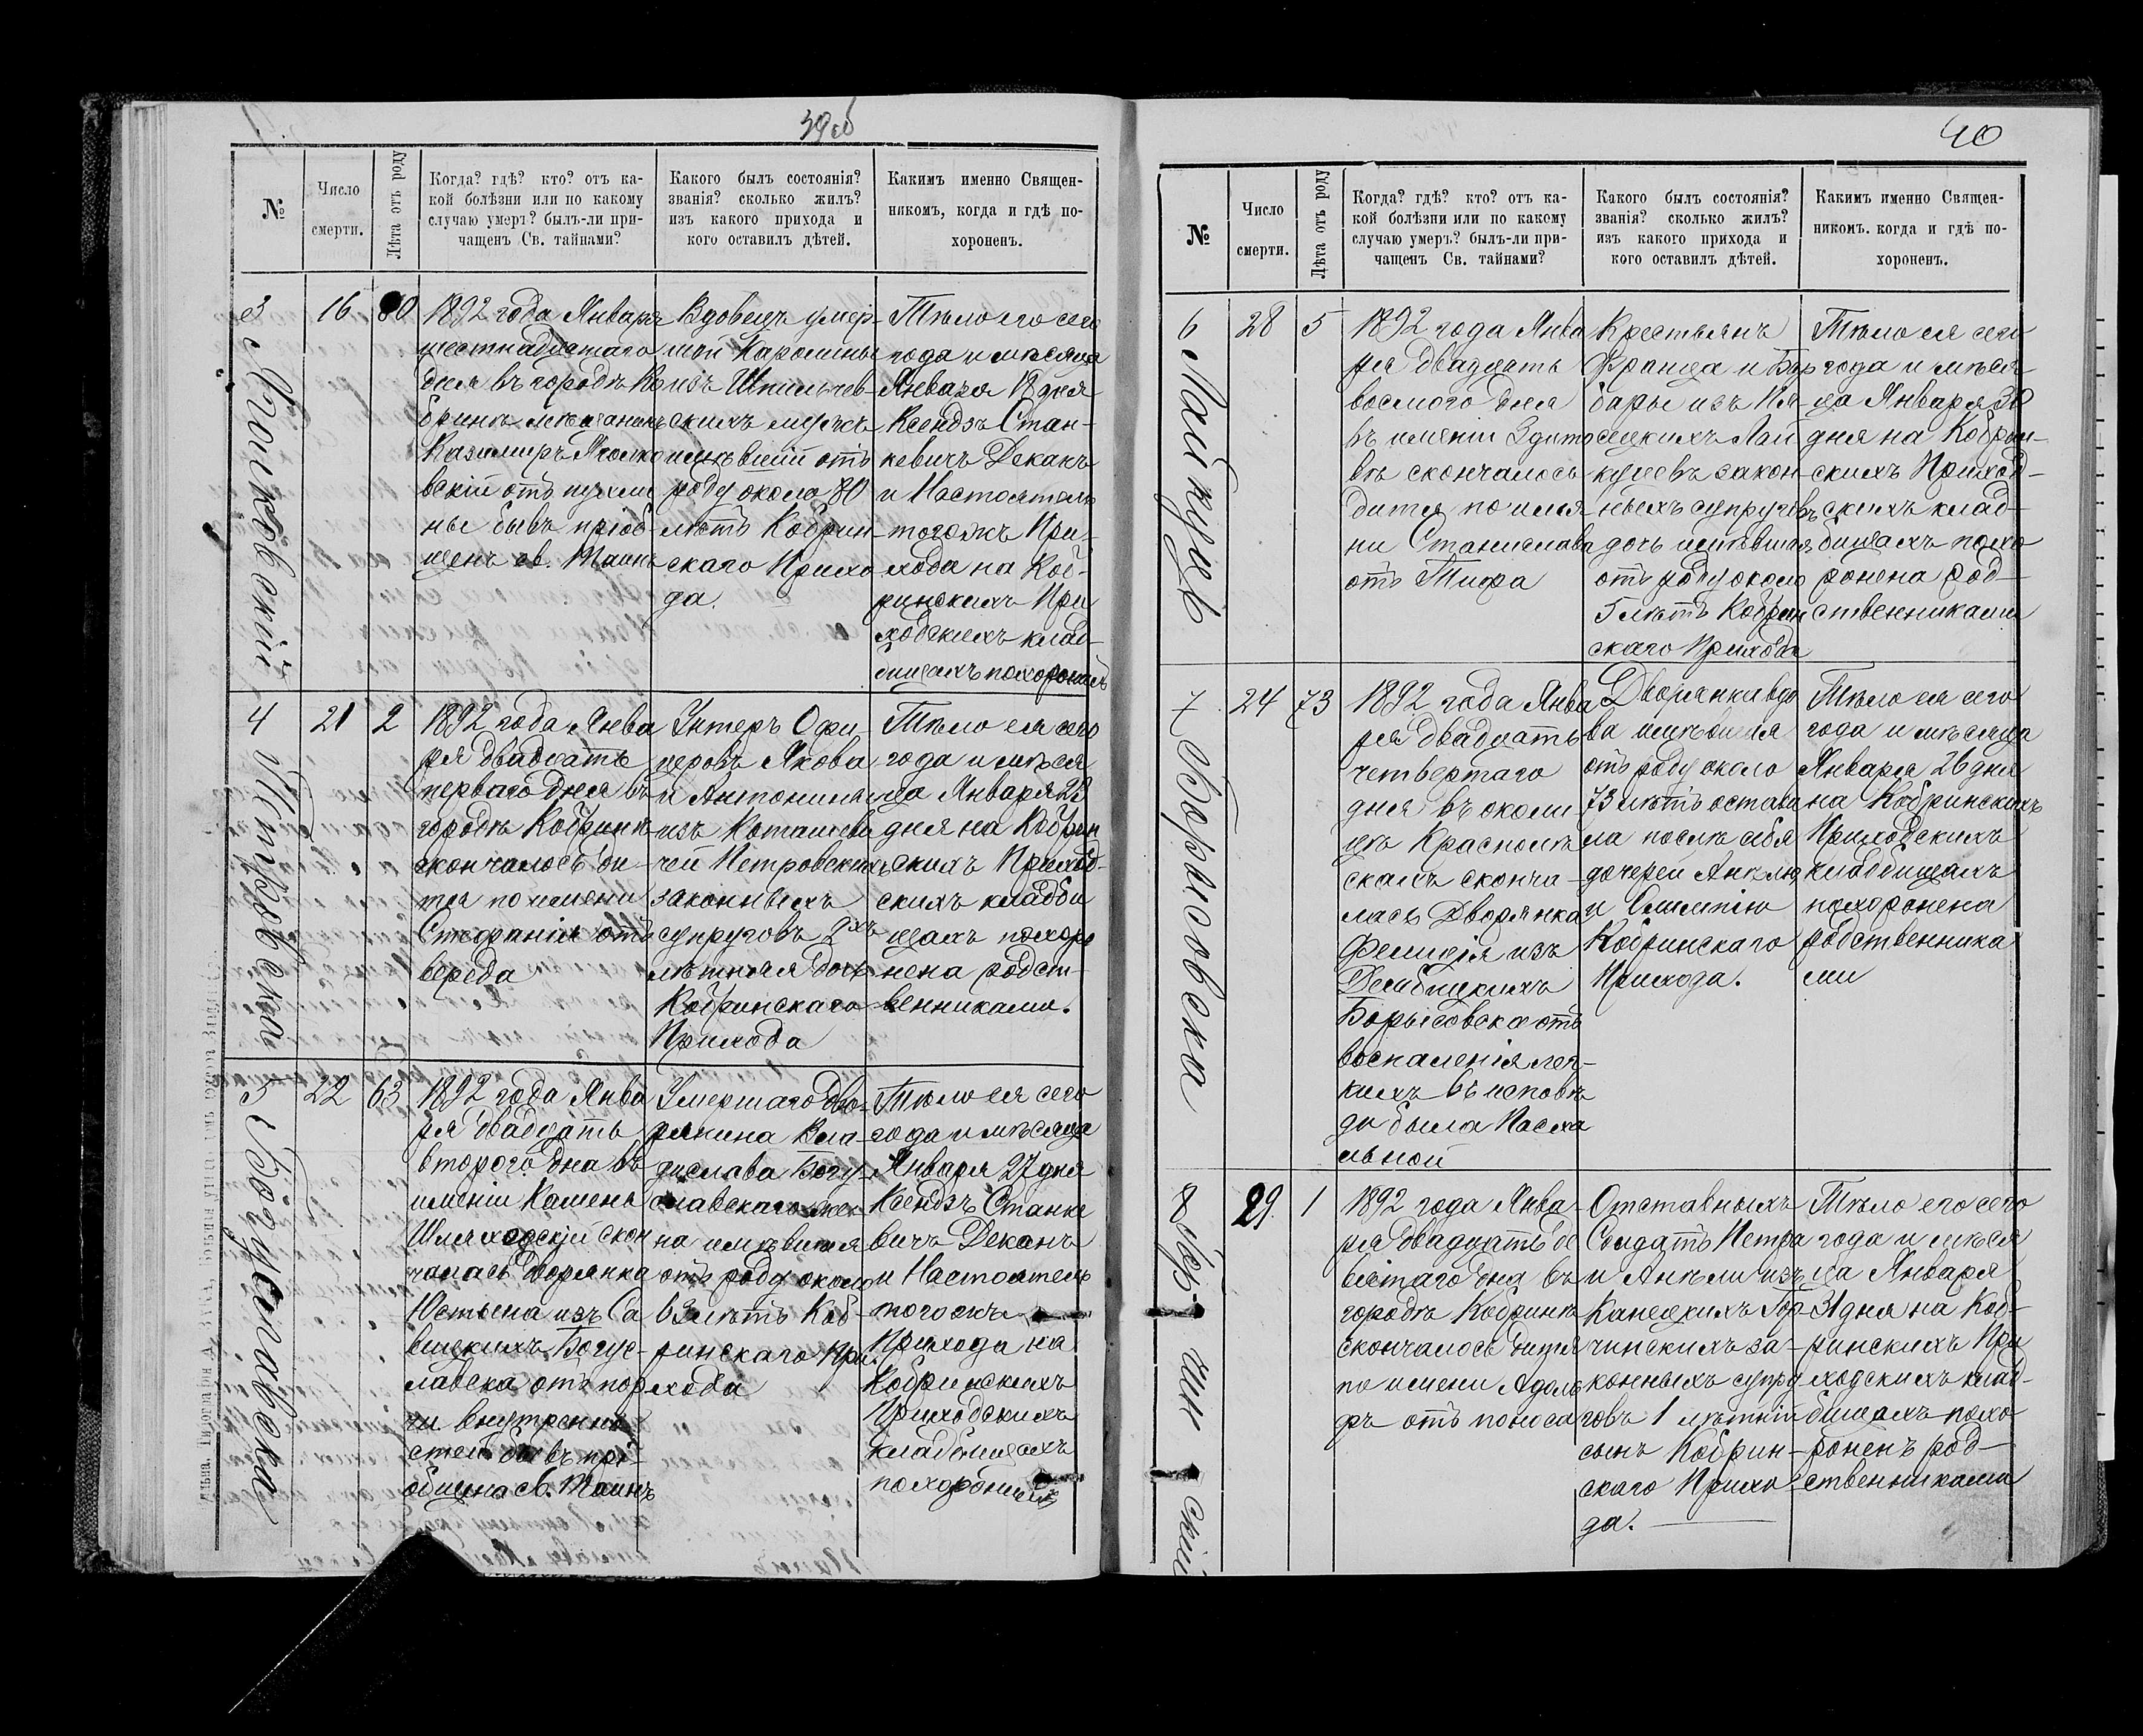 39об
№
Число
смерти.
Лѣта отъ роду
Когда? гдѣ? кто? отъ ка-
кой болѣзни или по какому
случаю умеръ? былъ-ли при-
чащенъ Св. тайнами?
Какого былъ состоянія?
званія? сколько жилъ?
изъ какого прихода и
кого оставилъ дѣтей.
Какимъ именно Священ-
никомъ, когда и гдѣ по-
хороненъ.
3
16
80
1892 года Январь
шестнадцатаго
дня въ городѣ Ко
бринѣ мѣщанинъ
Казимиръ
вскій отъ
ны бывъ пріоб-
щенъ св. Таинъ
Вдовецъ умер-
шой Каролины
изъ
скихъ мужъ
имѣвшій отъ
роду около 80
лѣтъ Кобрин-
скаго Прихо
да.
Тѣло его сего
года и мѣсяца
Января 18 дня
Ксендзъ Стан-
кевичъ Деканъ
и Настоятель
тогожъ При-
хода на Коб-
ринскихъ При
ходскихъ клад-
бищахъ похоронилъ
4
Петровска
21
2
1892 года Янва
ря двадцать
перваго дня въ
городѣ Кобринѣ
скончалось ди-
тя по имени
Стефанія отъ
вереда
Унтеръ Офи-
церовъ Якова
и Антонины
изъ
чей Петровскихъ
законныхъ
супруговъ 2хъ
лѣтняя дочь
Кобринскаго
Прихода
Тѣло ея сего
года и мѣся
ца Января 23
дня на Кобрин
скихъ Приход-
скихъ кладби
щахъ похоро
нена родст-
венниками.
5
Богуславска
22
63
1892 года Янва
ря двадцать
втораго дня въ
имѣніи Камень
Шляхоцскій скон
чалась Дворянка
Юстына изъ Са
вицкихъ Богус-
лавска отъ пор
чи внутренно
стей бывъ прі-
общена св. Таинъ
Умершаго дво-
рянина Вла-
дислава Богу-
славскаго же
на имѣвшая
отъ роду около
63 лѣтъ Коб-
ринскаго При
хода
Тѣло ея сего
года и мѣсяца
Января 27 дня
Ксендзъ Станке
вичъ Деканъ
и Настоятель
тогожъ
Прихода на
Кобринскихъ
Приходскихъ
кладбищахъ
похоронилъ
40
№
Число
смерти.
Лѣта отъ роду
Когда? гдѣ? кто? отъ ка-
кой болѣзни или по какому
случаю умеръ? былъ-ли при-
чащенъ Св. тайнами?
Какого былъ состоянія?
званія? сколько жилъ?
изъ какого прихода и
кого оставилъ дѣтей.
Какимъ именно Священ-
никомъ. когда и гдѣ по-
хороненъ.
6
Лойкуцъ
28
5
1892 года Янва
ря двадцать
восьмого дня
въ имѣніи Здито
вѣ скончалось
дитя по имя
ни Станислава
отъ Тифа
Крестьянъ
Франца и Бар
бары изъ
сецкихъ Лой
куцевъ закон
ныхъ супруговъ
дочь имѣвшая
отъ роду около
5 лѣтъ Кобрин
скаго Прихода
Тѣло ея сего
года и мѣся-
ца Января 30
дня на Кобрин-
скихъ Приход-
скихъ клад-
бищахъ похо
ронена род-
ственниками
7
Борысовска
24
73
1892 года Янва
ря двадцать
четвертаго
дня въ околи
цѣ
скахъ сконча-
лась Дворянка
Фелиція изъ
Борысовска отъ
воспаленія лег-
кихъ въ исповѣ
ди была Пасха
льной
Дворянка вдо
ва имѣвшая
отъ роду около
73 лѣтъ остави
ла послѣ себя
дочерей Анѣлю
и Олимпію
Кобринскаго
Прихода.
Тѣло ея сего
года и мѣсяца
Января 26 дня
на Кобринскихъ
Приходскихъ
кладбищахъ
похоронена
родственника
ми
8
Горчинскій
29
1
1892 года Янва-
ря двадцать де
вятаго дня въ
городѣ Кобринѣ
скончалось дитя
по имени Адоль
фъ отъ поноса
Отставныхъ
Солдатъ Петра
и Анѣли изъ
Канецкихъ Гор-
чинскихъ за-
конныхъ супру
говъ 1 лѣтній
сынъ Кобрин-
скаго Прихо-
да.
Тѣло его сего
года и мѣся
ца Января
31 дня на Коб-
ринскихъ При
ходскихъ клад-
бищахъ похо
роненъ род-
ственниками